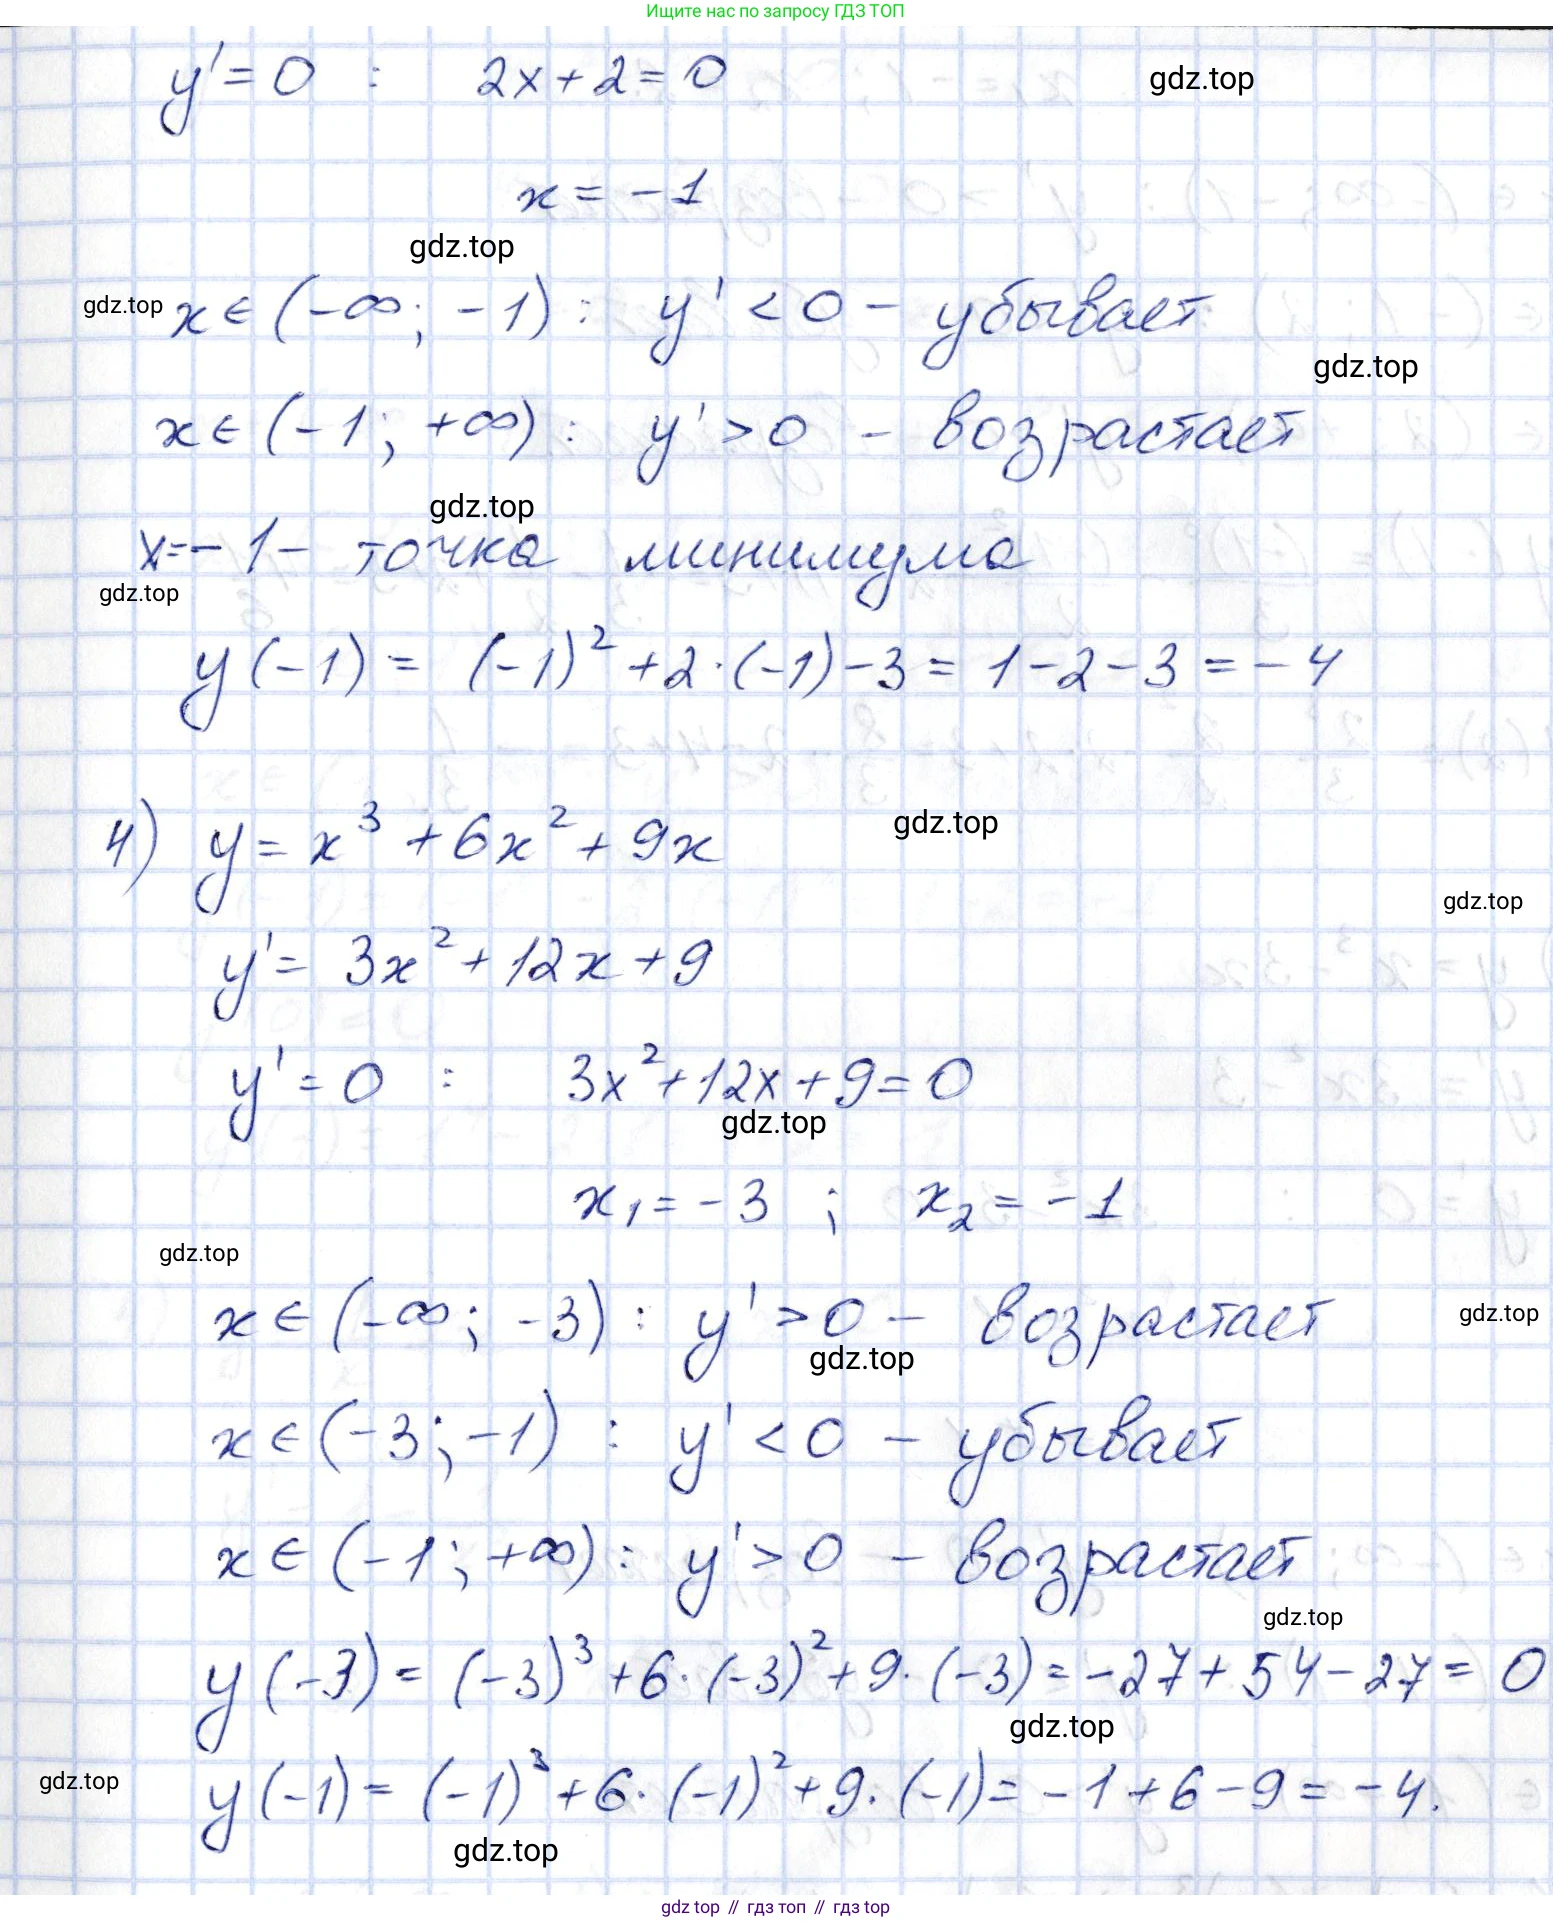 Ищите нас по запросу ГДЗ ТОП
y' = 0 : 2x + 2 = 0
gdz.top
x = -1
gdz.top
gdz.top
x ∈ (-∞; -1) : y' < 0 - убывает
gdz.top
x ∈ (-1; +∞) : y' > 0 - возрастает
gdz.top
x = -1 - точка минимума
gdz.top
y(-1) = (-1)² + 2·(-1) - 3 = 1 - 2 - 3 = -4
4) y = x³ + 6x² + 9x
gdz.top
gdz.top
y' = 3x² + 12x + 9
y' = 0 : 3x² + 12x + 9 = 0
gdz.top
x₁ = -3 ; x₂ = -1
gdz.top
x ∈ (-∞; -3) : y' > 0 - возрастает
gdz.top
gdz.top
x ∈ (-3; -1) : y' < 0 - убывает
x ∈ (-1; +∞) : y' > 0 - возрастает
gdz.top
y(-3) = (-3)³ + 6·(-3)² + 9·(-3) = -27 + 54 - 27 = 0
gdz.top
gdz.top
y(-1) = (-1)³ + 6·(-1)² + 9·(-1) = -1 + 6 - 9 = -4.
gdz.top
gdz top // гдз топ // гдз top